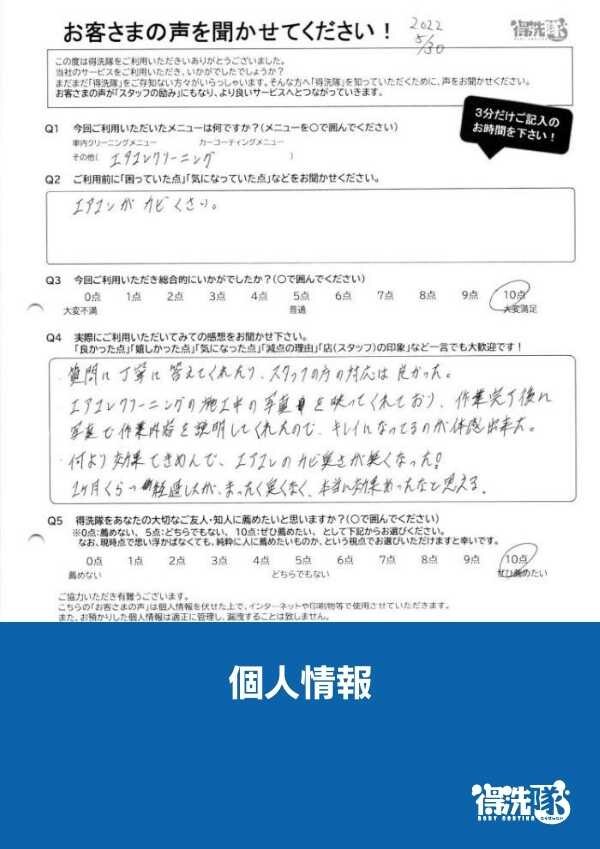 お客さまの声を聞かせてください!
2022
5/30
得洗隊
この度は得洗隊をご利用いただきありがとうございました。
当社のサービスをご利用いただき、いかがでしたでしょうか?
まだまだ「得洗隊」をご存知ない方々がいらっしゃいます。そんな方へ「得洗隊」を知っていただくために、声をお聞かせください。
お客さまの声が「スタッフの励み」にもなり、より良いサービスへとつながっていきます。
3分だけご記入の
お時間を下さい!
Q1 今回ご利用いただいたメニューは何ですか?(メニューを〇で囲んでください)
車内クリーニングメニュー カーコーティングメニュー
その他( エアコンクリーニング )
Q2 ご利用前に「困っていた点」「気になっていた点」などをお聞かせください。
エアコンがカビくさい。
Q3 今回ご利用いただき総合的にいかがでしたか?(〇で囲んでください)
0点 1点 2点 3点 4点 5点 6点 7点 8点 9点 10点
大変不満 普通 大変満足
Q4 実際にご利用いただいてみての感想をお聞かせ下さい。
「良かった点」「嬉しかった点」「気になった点」「減点の理由」「店(スタッフ)の印象」など一言でも大歓迎です!
・質問に丁寧に答えてくれたり、スタッフの方の対応は良かった。
エアコンクリーニングの施工中の写真を映ってくれており、作業完了後に
写真で作業内容を説明してくれたので、キレイになってるのが体感出来た。
・何より効果てきめんで、エアコンのカビ臭さが無くなった!
1ヶ月くらい経過したが、まったく臭くなく、本当に効果あったなと思える。
Q5 得洗隊をあなたの大切なご友人・知人に薦めたいと思いますか?(〇で囲んでください)
※0点:薦めない、5点:どちらでもない、10点:ぜひ薦めたい、として下記からお選びください。
なお、現時点で思い浮かばなくても、純粋に人に薦めたいものか、という視点でお選びいただけますと幸いです。
0点 1点 2点 3点 4点 5点 6点 7点 8点 9点 10点
薦めない どちらでもない ぜひ薦めたい
ご協力いただき有難うございます。
こちらの「お客さまの声」は個人情報を伏せた上で、インターネットや印刷物等で使用させていただきます。
また、お預かりした個人情報は適正に管理し、漏洩することは致しません。
個人情報
得洗隊
BODY COATING